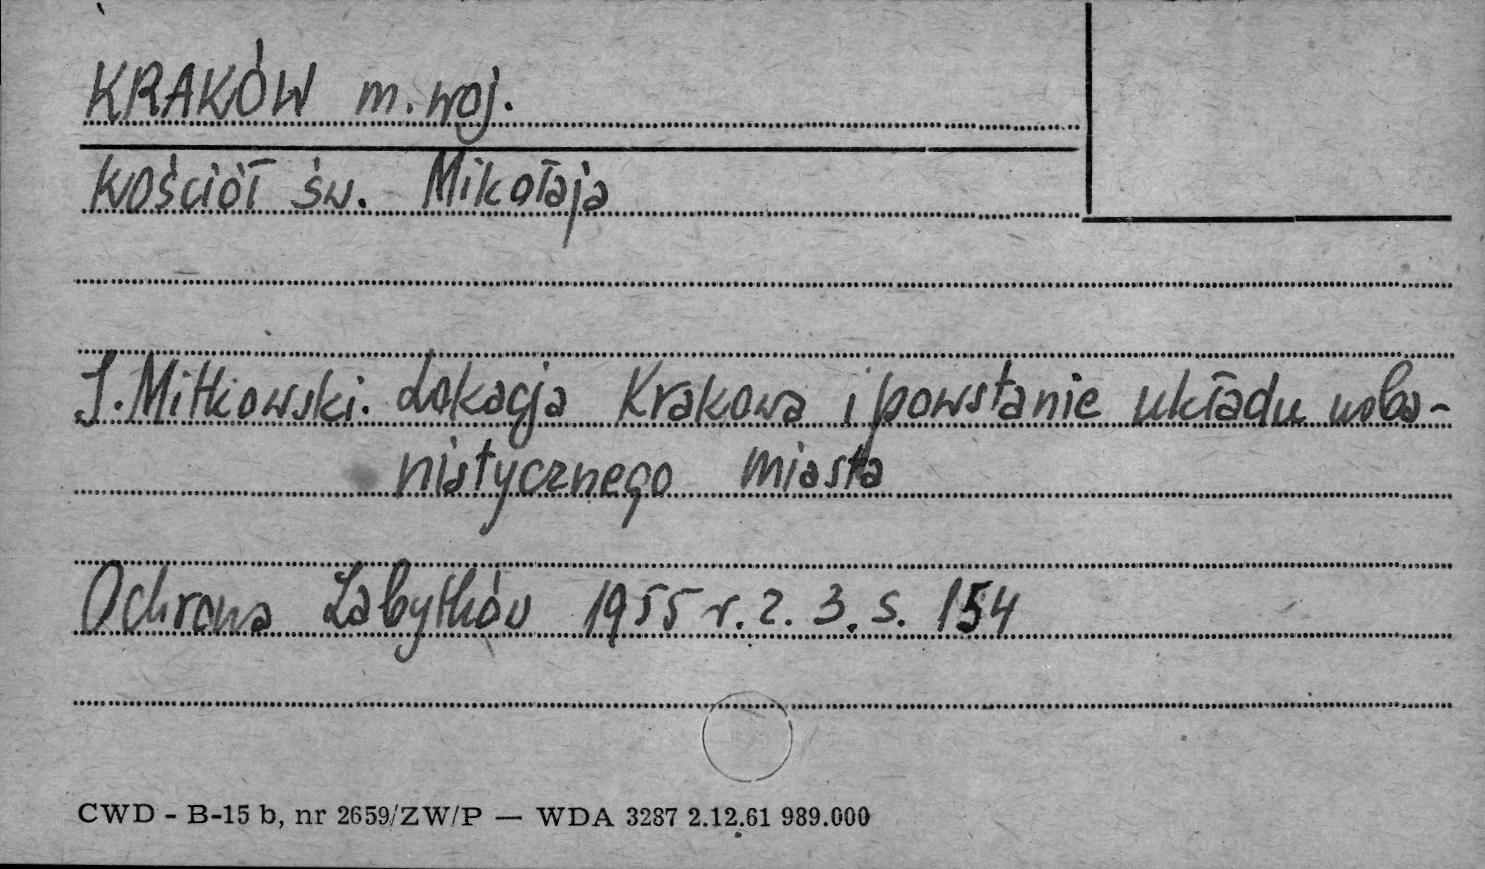 KRAKÓW m. woj.
Kościół św. Mikołaja
J. Mitkowski. Lokacja Krakowa i powstanie układu urba-
nistycznego miasta
Ochrona Zabytków 1955 r. z. 3. s. 154
CWD - B-15 b, nr 2659/ZW/P — WDA 3287 2.12.61 989.000